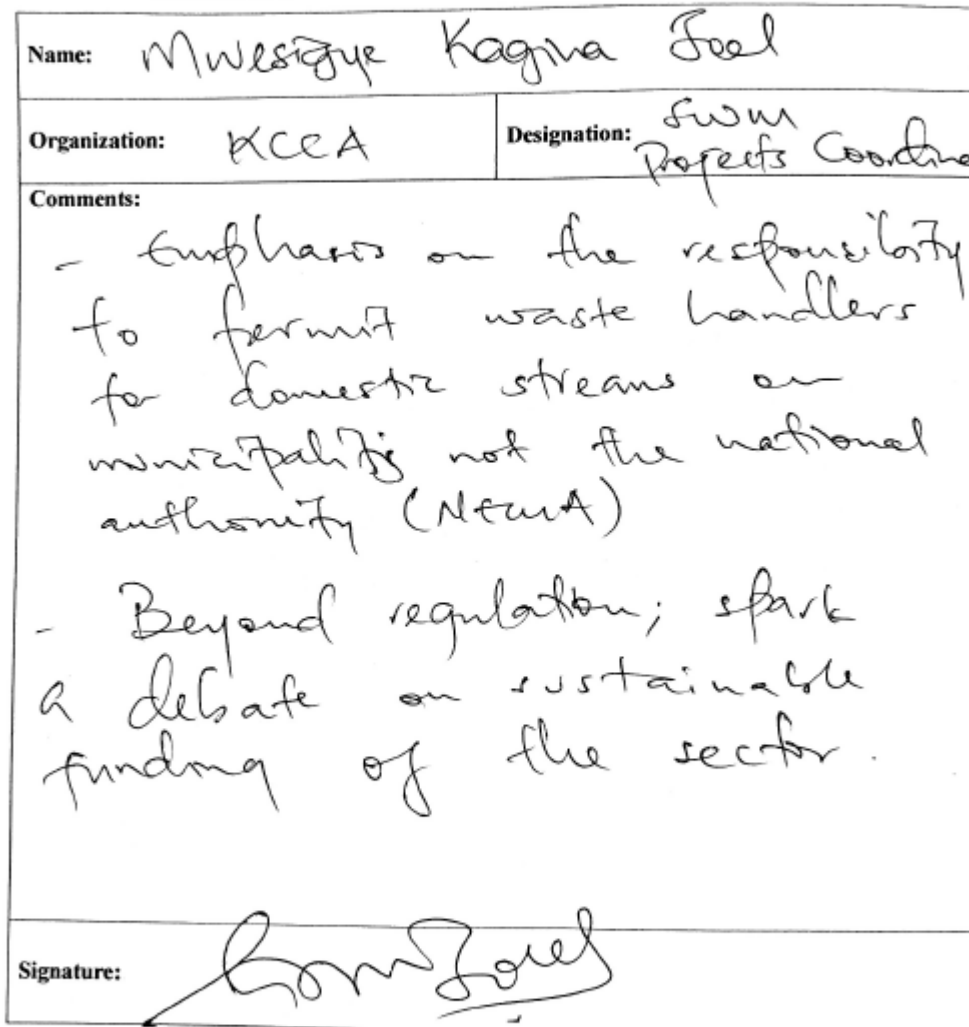 Name: Mwesigye Kagina Joel
Organization: KCCA
Designation: SWM
Projects Coordina
Comments:
- Emphasis on the responsibility
to permit waste handlers
for domestic streams on
municipality not the national
authority (NEMA)
- Beyond regulation; spark
a debate on sustainable
funding of the sector.
Signature: Joel